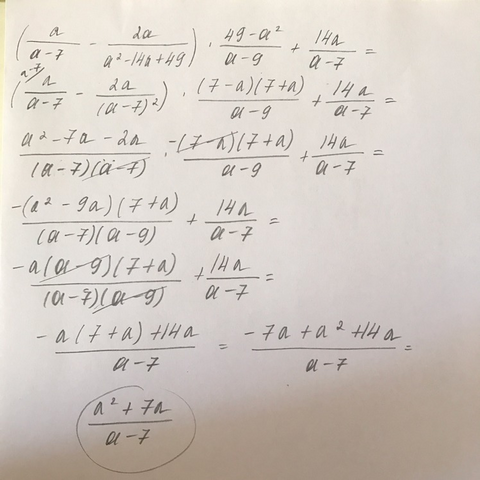 (a/(a-7) - 2a/(a²-14a+49)) · (49-a²)/(a-9) + 14a/(a-7) =
(a-7/ a/(a-7) - 2a/(a-7)²) · (7-a)(7+a)/(a-9) + 14a/(a-7) =
(a²-7a-2a)/((a-7)(a-7)) · -(7-a)(7+a)/(a-9) + 14a/(a-7) =
-(a²-9a)(7+a)/((a-7)(a-9)) + 14a/(a-7) =
-a(a-9)(7+a)/((a-7)(a-9)) + 14a/(a-7) =
(-a(7+a)+14a)/(a-7) = (-7a+a²+14a)/(a-7) =
(a²+7a)/(a-7)